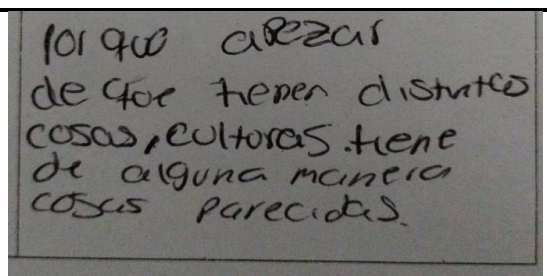 Por que apezar
de que tienen distintas
cosas, culturas. tiene
de alguna manera
cosas parecidas.